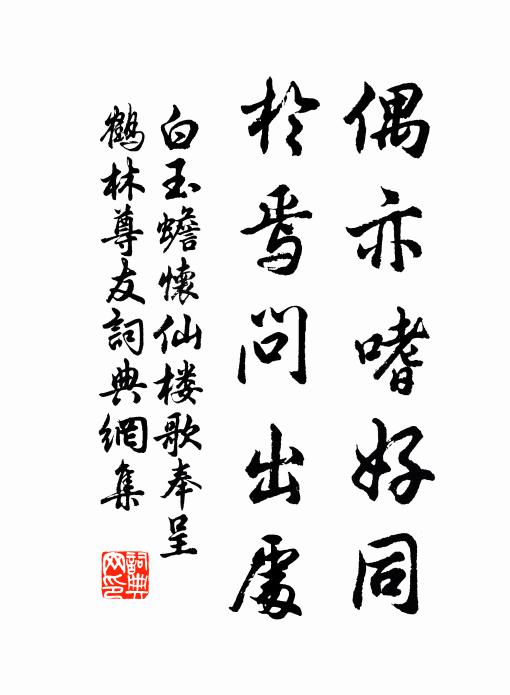 偶亦嗜好同
於焉問出處
白玉蟾懷仙楼歌奉呈
鶴林尊友詞典網集
詞典
网印